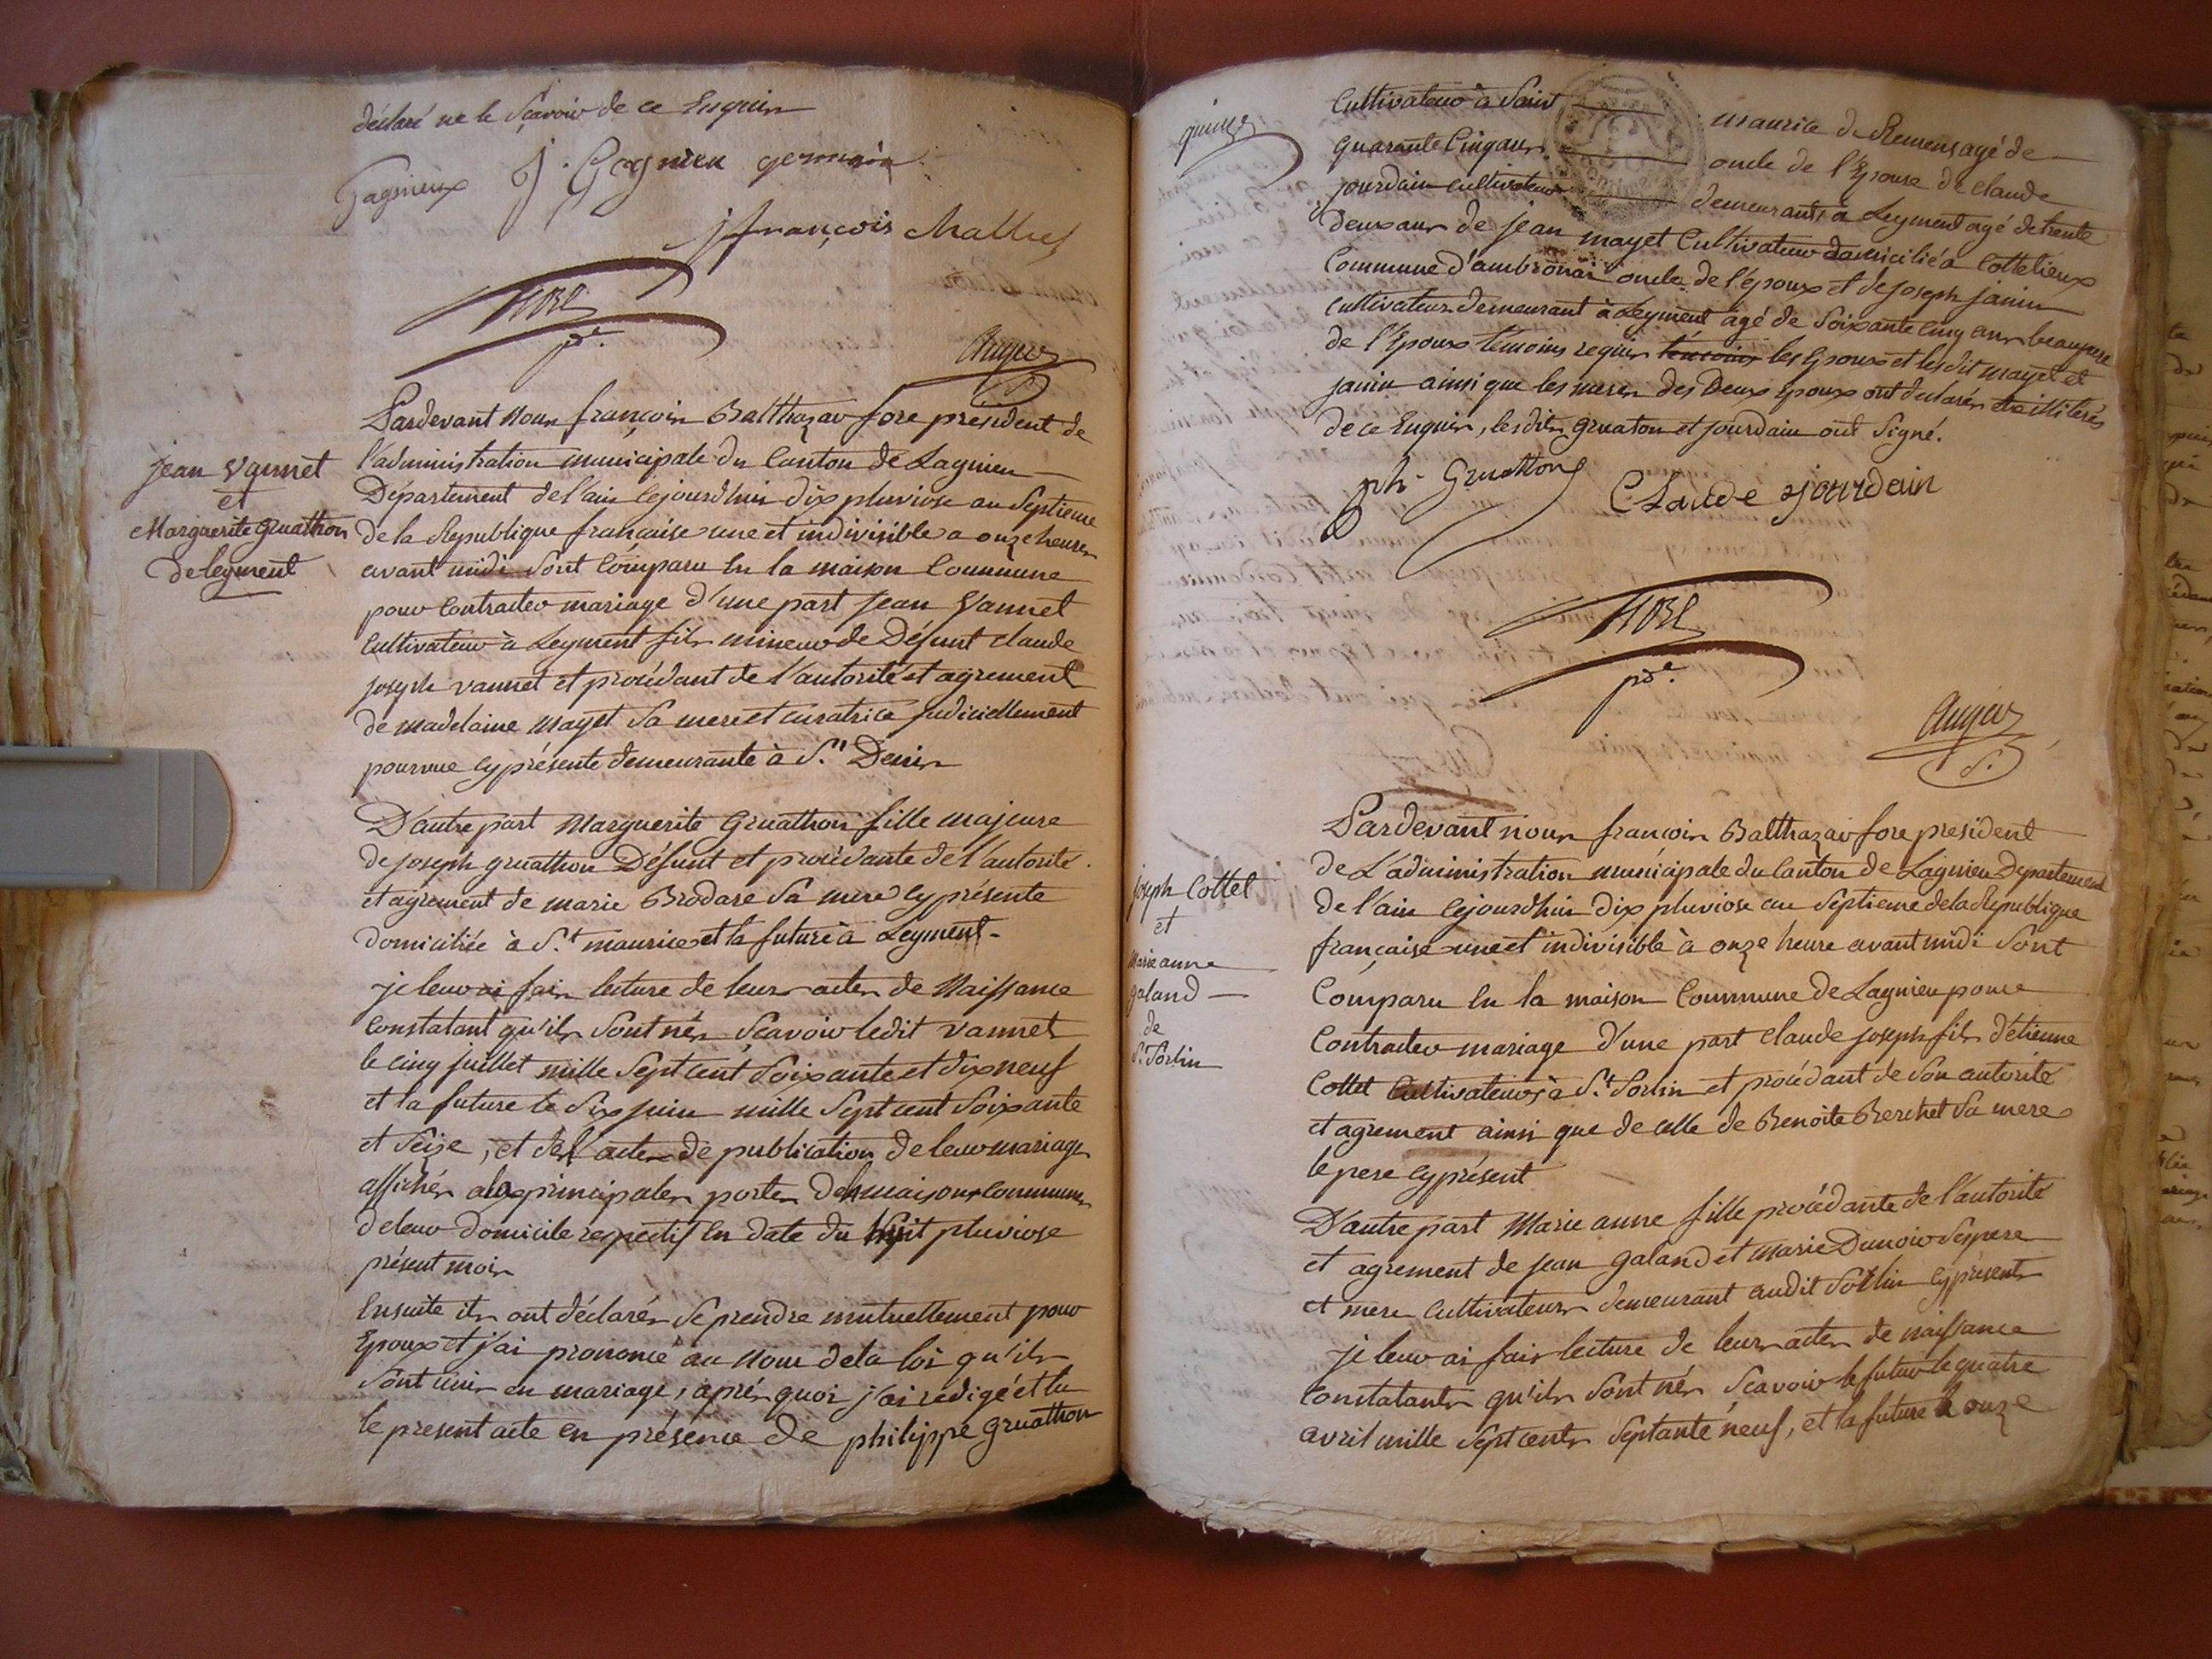 déclaré ne le sçavoir de ce Enquis
Gagnieux J. Gagnieu germain
j françois Mathieu
fore
pdt.
Auger
S.
jean Vannet
et
Marguerite gruathon
de leyment
Pardevant Nous françois Balthazar fore président de
l'administration municipale du Canton de Lagnieu
Département de l'ain Cejourd'hui dix pluviose an Septieme
de la Republique française une et indivisible a onze heures
avant midi Sont Comparu En la maison Commune
pour Contracter mariage d'une part Jean Vannet
Cultivateur à Leyment fils mineur de Défunt claude
joseph vannet et procédant de l'autorité et agrement
de madelaine mayet Sa mere et curatrice judiciellement
pourvue cy présente demeurante à St. Denis
D'autre part Marguerite Gruathon fille majeure
de joseph gruathon Défunt et procédante de l'autorité
et agrement de marie Brodare Sa mere cy présente
domiciliée à St. maurice et la future à Leyment.
je leur ai fais lecture de leurs actes de Naissance
Constatant qu'ils Sont nés Scavoir ledit vannet
le cinq juillet mille Sept cent Soixante et dix neuf
et la future le Six juin mille Sept cent Soixante
et Seize, et de l'actes de publication de leur mariage
affichés aux principales portes des maisons Communes
de leur domicile respectif En date du huit pluviose
présent mois
Ensuite ils ont déclarés Se prendre mutuellement pour
Epoux et j'ai prononcé au Nom de la loi qu'ils
Sont unis en mariage, aprés quoi j'ai rédigé et lu
le present acte en présence de philippe gruathon
quinze
Cultivateur à Saint maurice de Remens agé de
quarante Cinq ans oncle de l'Epouse de claude
jourdain cultivateur demeurant à Leyment agé de trente
deux ans de jean mayet Cultivateur domicilié à Cottelieux
Commune d'ambronai oncle de l'époux et de joseph janin
cultivateur demeurant à Leyment agé de Soixante cinq ans beaupere
de l'Epoux témoins requis témoins les Epoux et lesdit mayet et
janin ainsi que les meres des Deux époux ont declarés être illiterés
de ce Enquis, lesdits gruaton et jourdain ont Signé.
ph. Gruatton
Claude jourdain
fore
pdt.
Auger
S.
joseph Cottet
et
Marie anne
galand
de
St. Sorlin
Pardevant nous françois Balthazar fore president
de L'administration municipale du Canton de Lagnieu Departement
de l'ain Cejourdhui Dix pluviose an Septieme de la Republique
française une et indivisible à onze heure avant midi Sont
Comparu En la maison Commune de Lagnieu pour
Contracter mariage d'une part claude joseph fils d'étienne
Cottet Cultivateurs à St. Sorlin et procédant de Son autorité
et agrement ainsi que de celle de Benoite Berchet Sa mere
le pere cy présent
D'autre part Marie anne fille procédante de l'autorité
et agrement de jean galand et marie Dunoir Ses pere
et mere Cultivateurs demeurant audit Sorlin cy présents
je leur ai fais lecture de leurs actes de naissance
Constatants qu'ils Sont nés Scavoir le futur le quatre
avril mille Sept cents Septante neuf, et la future le onze